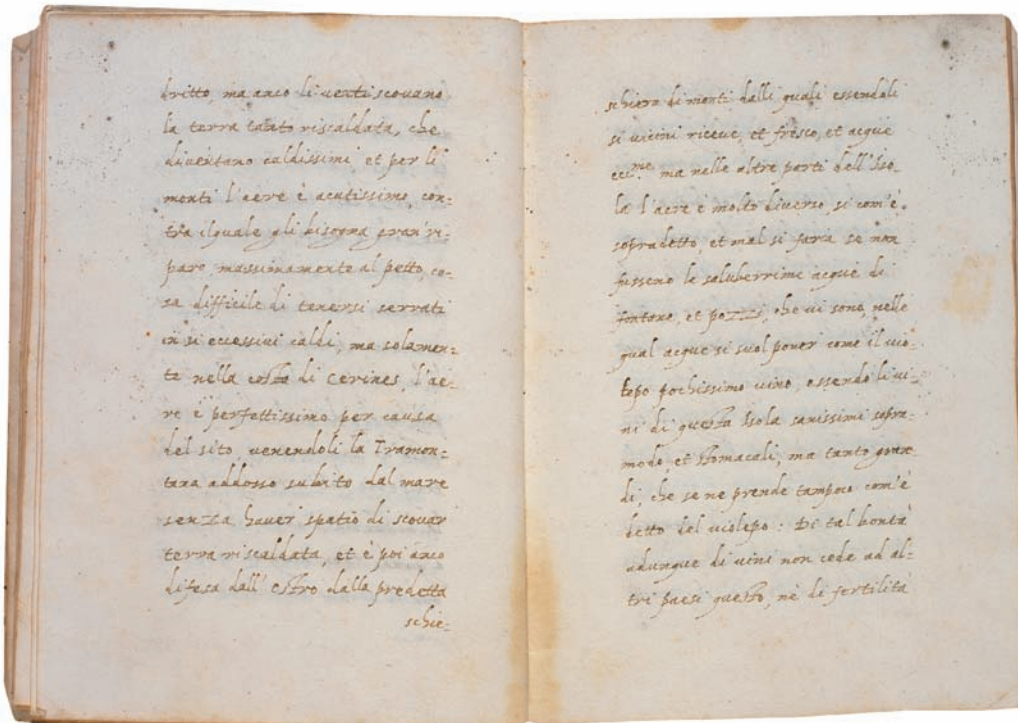 dritto, ma anco li venti scovano
la terra tanto riscaldata, che
diventano caldissimi, et per li
monti l'aere è acutissimo, con=
tra il quale gli bisogna gran ri=
paro, massimamente al petto, co=
sa difficile di tenersi serrati
in si eccessivi caldi, ma solamen=
te nella costa di Cerines, l'ae=
re è perfettissimo per causa
del sito, venendoli la Tramon=
tana addosso subito dal mare
senza haver spatio di scovar
terra riscaldata, et è poi anco
difesa dall'ostro dalla predetta
schie=
schiera di monti, dalli quali essendoli
si vicini riceve, et fresco, et acque
ecc.me ma nelle altre parti dell'Iso=
la l'aere è molto diverso, si com'è
sopradetto, et mal si faria se non
fusseno le saluberrime acque di
fontane, et pozzi, che vi sono, nelle
qual acque si suol poner come il vio=
lepo pochissimo vino, essendo li vi=
ni di questa Isola sanissimi sopra=
modo, et stomacali, ma tanto gran=
di, che se ne prende tampoco com'è
detto del violepo: Di tal bontà
adunque di vini non cede ad al=
tri paesi questo, nè di fertilità